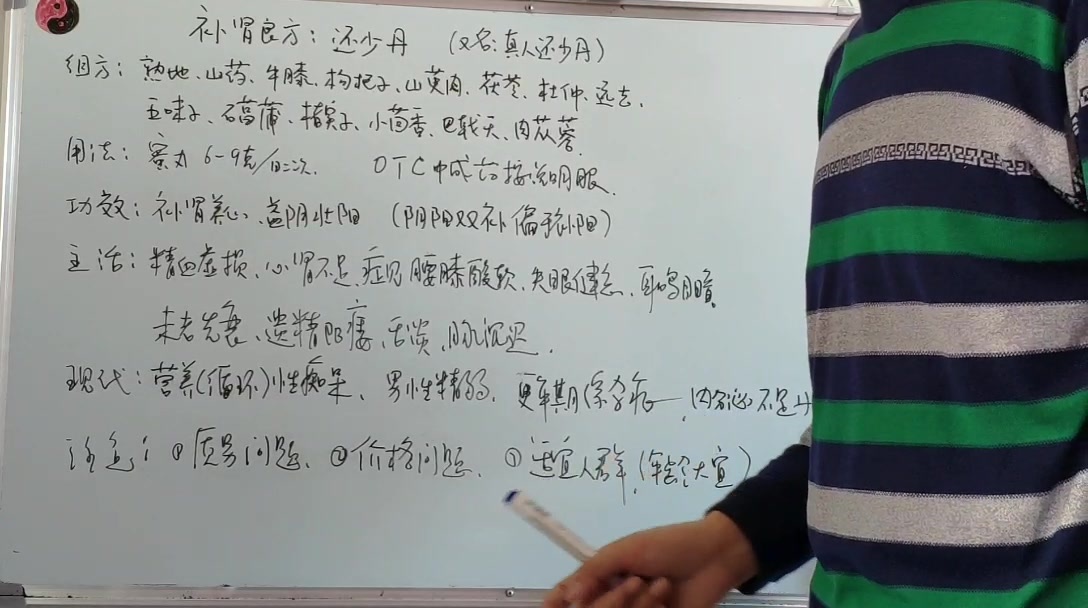 补肾良方：还少丹 （又名：真人还少丹）
组方：熟地、山药、牛膝、枸杞子、山萸肉、茯苓、杜仲、远志、
五味子、石菖蒲、楮实子、小茴香、巴戟天、肉苁蓉
用法：蜜丸 6-9克/日二次. OTC中成药按说明服.
功效：补肾养心、益阴壮阳 （阴阳双补偏补阳）
主治：精血虚损、心肾不足、症见腰膝酸软、失眠健忘、耳鸣目暗
未老先衰、遗精阳痿、舌淡、脉沉迟.
现代：营养(循环)性痴呆、男性精弱、更年期综合症、内分泌不足
注意：①质量问题、②价格问题、③适宜人群.(年龄大宜)